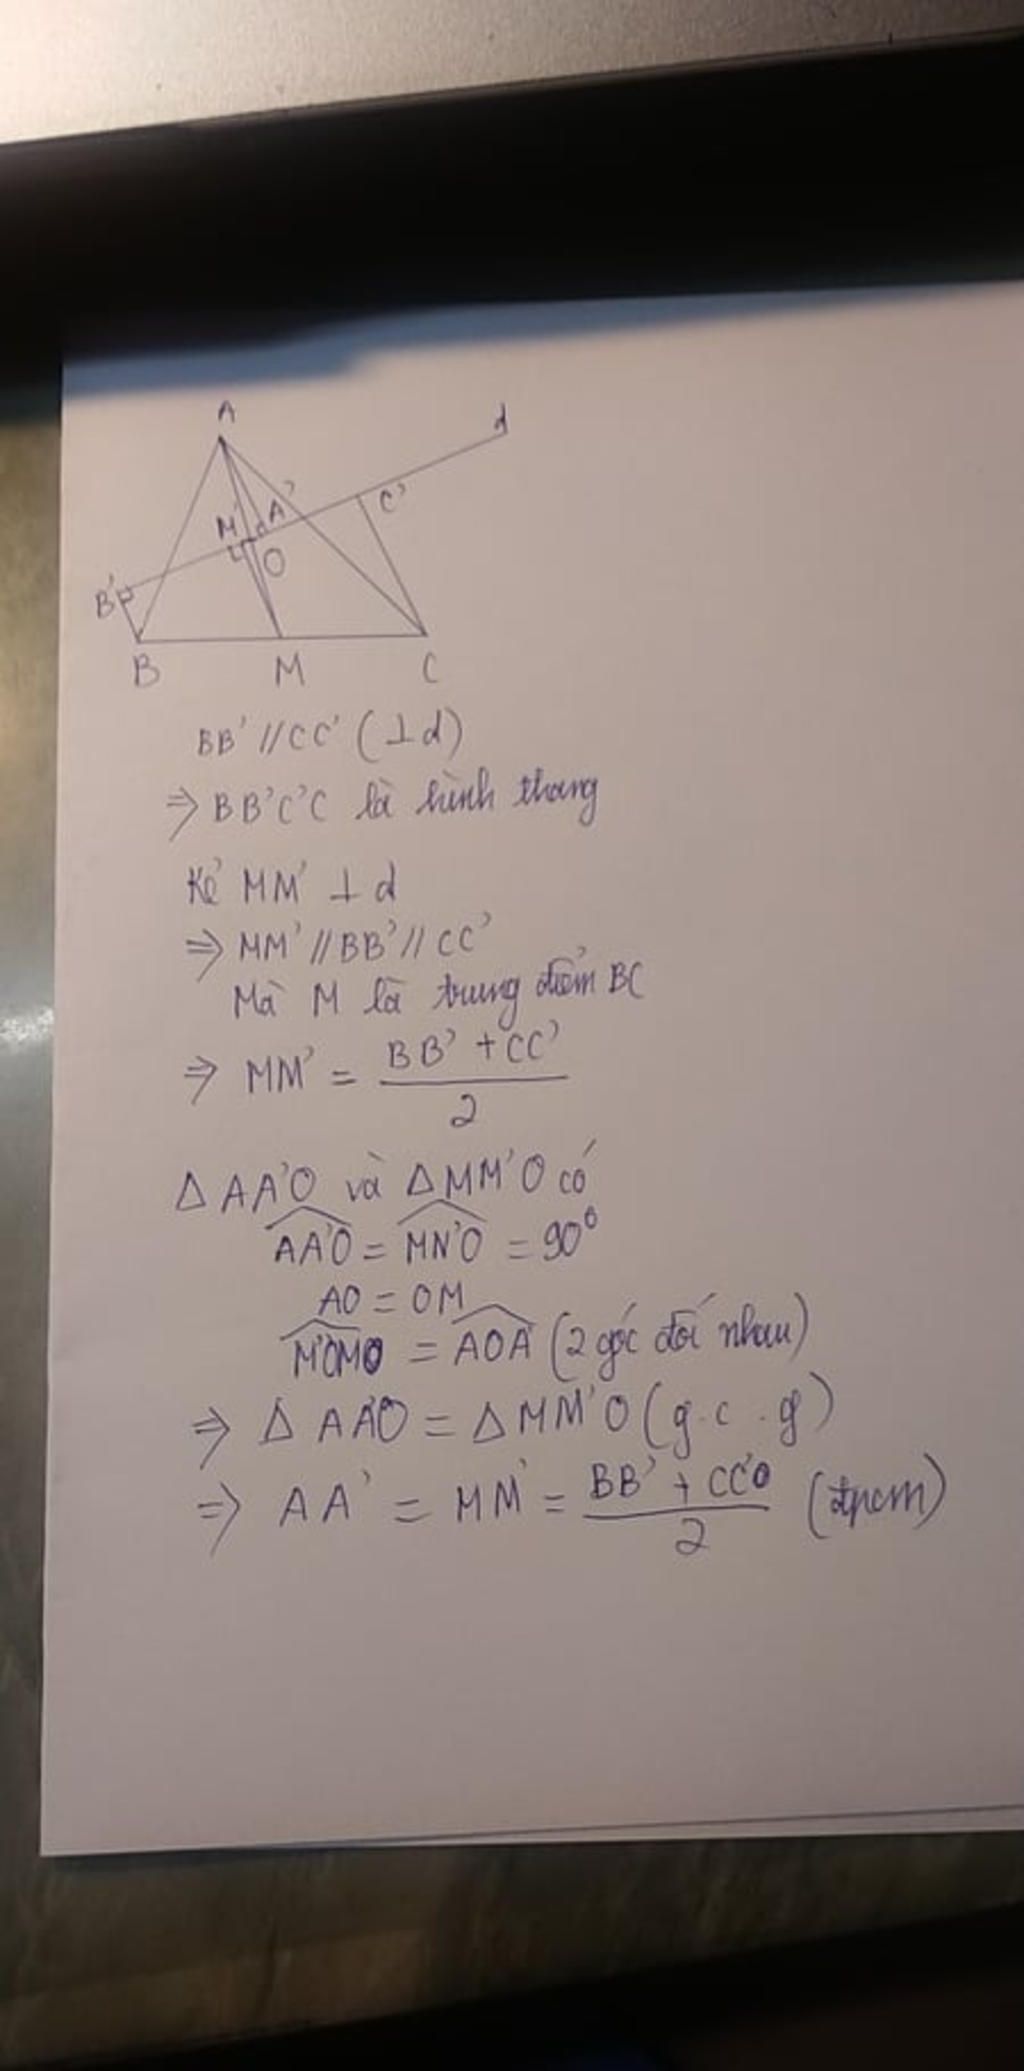 A
d
A'
C'
M'
O
B'
B
M
C
BB' // CC' (⊥d)
⇒ BB'C'C là hình thang
Kẻ MM' ⊥ d
⇒ MM' // BB' // CC'
Mà M là trung điểm BC
⇒ MM' = \frac{BB' + CC'}{2}
Δ AA'O và Δ MM'O có
\widehat{AA'O} = \widehat{MN'O} = 90⁰
AO = OM
\widehat{M'OMO} = \widehat{AOA'} (2 góc đối nhau)
⇒ Δ AA'O = Δ MM'O (g.c.g)
⇒ AA' = MM' = \frac{BB' + CC'O}{2} (đpcm)